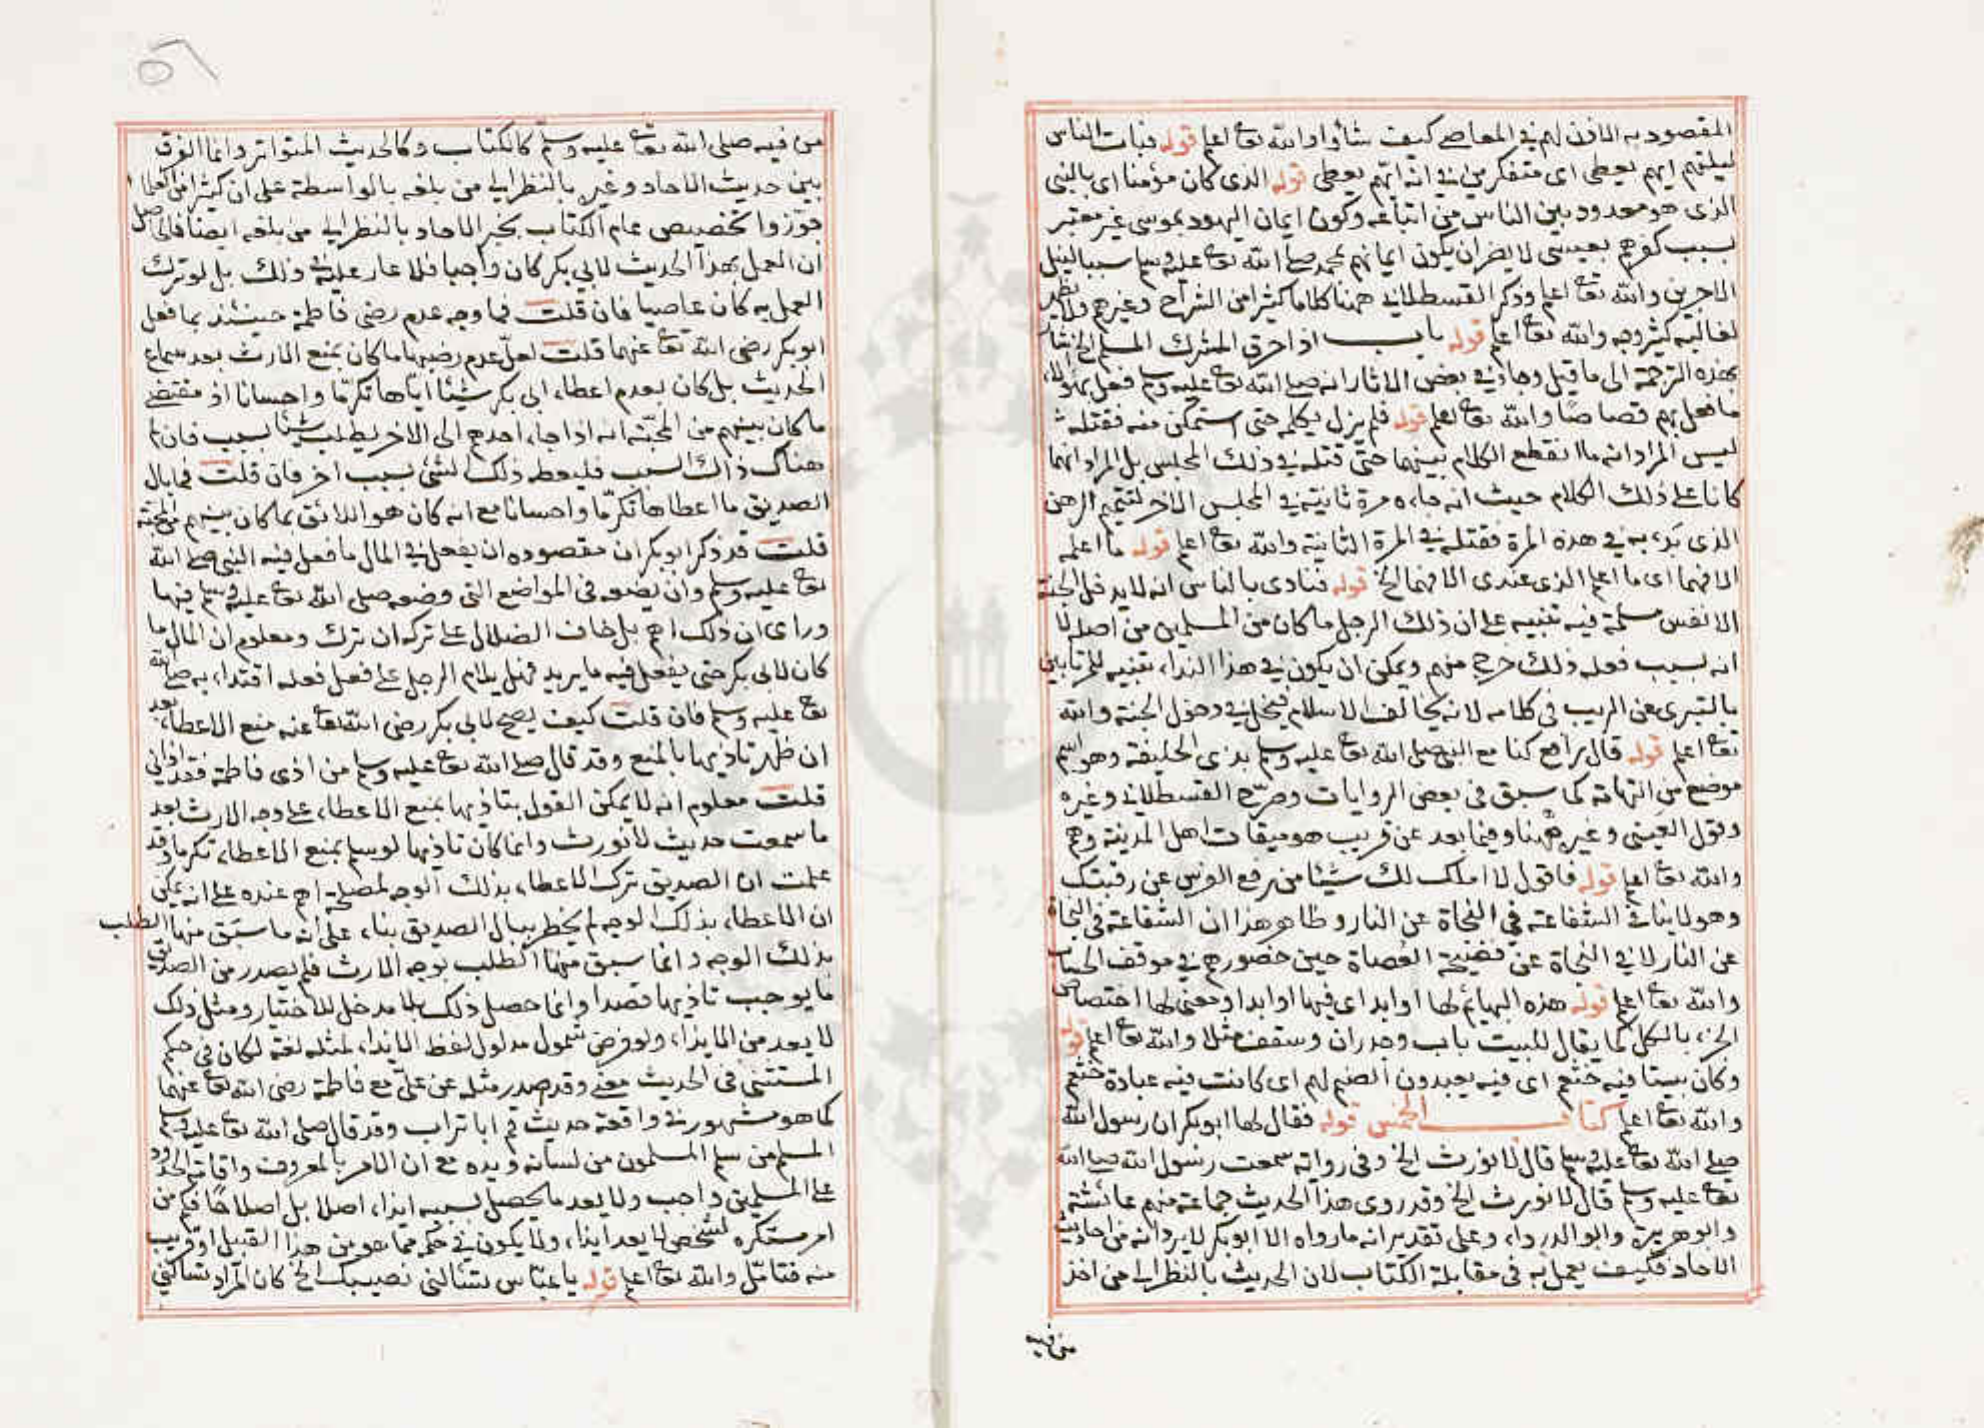 المقصود به الاذن لهم في المعاصي كيف شاؤا والله تعا اعلم قوله فبات الناس
ليلتهم ايهم يعطى اى متفكرين في انه ايهم يعطى قوله الذى كان مؤمنا اى بالنبى
الذى هو معدود بين الناس من اتباعه وكون ايمان اليهود بموسى غير معتبر
بسبب كفرهم بعيسى لا يضر ان يكون ايمانهم بمحمد صلى الله تعا عليه وسلم سببا لنيل
الاجرين والله تعا اعلم وذكر القسطلاني ههنا كلاما كثيرا من الشراح وغيرهم ولا يظهر
لغالبه كثير وجه والله تعا اعلم قوله باب اذا حرق المشرك المسلم الخ اشار
بهذه الترجمة الى ما قيل وجاء في بعض الاثار انه صلى الله تعا عليه وسلم فعل بهؤلاء
ما فعل بهم قصاصا والله تعا اعلم قوله فلم يزل يكلمه حتى استمكن منه فقتله
ليس المراد انه ما انقطع الكلام بينهما حتى قتله في ذلك المجلس بل المراد انهما
كانا على ذلك الكلام حيث انه جاءه مرة ثانية في المجلس الاخر لتتميم الرهن
الذى بدء به في هذه المرة فقتله في المرة الثانية والله تعا اعلم قوله ما اعلمه
الا فهما اى ما اعلم الذى عندى الا فهما الخ قوله فنادى بالناس انه لا يدخل الجنة
الا نفس مسلمة فيه تنبيه على ان ذلك الرجل ما كان من المسلمين من اصله لا
انه بسبب فعله ذلك خرج منهم ويمكن ان يكون في هذا النداء تنبيه للمرتابين
بالتبرى عن الريب في كلامه لانه يخالف الاسلام فيخل في دخول الجنة والله
تعا اعلم قوله قال رافع كنا مع النبي صلى الله تعا عليه وسلم بذى الحليفة وهو اسم
موضع من التهامة كما سبق في بعض الروايات وصرح القسطلاني وغيره
وقول العينى وغيره ههنا وفيما بعد عن قريب هو ميقات اهل المدينة وهم
والله تعا اعلم قوله فاقول لا املك لك شيئا من رفع الفرس عن رقبتك
وهو لا ينافى الشفاعة في النجاة عن النار وظاهر هذا ان الشفاعة في النجاة
عن النار لا في النجاة عن فضيحة العصاة حين حضورهم في موقف الحساب
والله تعا اعلم قوله هذه البهائم لها اوابد اى فيها اوابد ومعنى لها اختصاص
الجزء بالكل كما يقال للبيت باب وجدران وسقف مثلا والله تعا اعلم قوله
وكان بيتا فيه خثعم اى فيه يعبدون الصنم لهم اى كانت فيه عبادة خثعم
والله تعا اعلم كتاب الخمس قوله فقال لها ابو بكر ان رسول الله
صلى الله تعا عليه وسلم قال لا نورث الخ وفى رواية سمعت رسول الله صلى الله
تعا عليه وسلم قال لا نورث الخ وقد روى هذا الحديث جماعة منهم عائشة
وابو هريرة وابو الدرداء وعلى تقدير انه ما رواه الا ابو بكر لا يرد انه من احاديث
الاحاد فكيف يعمل به في مقابلة الكتاب لان الحديث بالنظر الى من اخذ
من فيه
من فيه صلى الله تعا عليه وسلم كالكتاب وكالحديث المتواتر وانما الفرق
بين حديث الاحاد وغيره بالنظر الى من بلغه بالواسطة على ان كثيرا من العلماء
جوزوا تخصيص عام الكتاب بخبر الاحاد بالنظر الى من بلغه ايضا فالحاصل
ان العمل بهذا الحديث لابي بكر كان واجبا فلا عار عليه في ذلك بل لو ترك
العمل به كان عاصيا فان قلت فما وجه عدم رضى فاطمة حينئذ بما فعل
ابو بكر رضى الله تعا عنهما قلت لعل عدم رضيها ما كان بمنع الارث بعد سماع
الحديث بل كان بعدم اعطاء ابى بكر شيئا اياها تكرما واحسانا اذ مقتضى
ما كان بينهم من المحبة انه اذا جاء احدهم الى الاخر يطلب شيئا بسبب فان لم
هناك ذاك السبب فليعطه ذلك الشئ بسبب اخر فان قلت فما بال
الصديق ما اعطاها تكرما واحسانا مع انه كان هو اللائق بما كان بينهم من المحبة
قلت قد ذكر ابو بكر ان مقصوده ان يفعل في المال ما فعل فيه النبي صلى الله
تعا عليه وسلم وان يضعه في المواضع التى وضعه صلى الله تعا عليه وسلم فيها
وراى ان ذلك اهم بل خاف الضلال على تركه ان ترك ومعلوم ان المال ما
كان لابى بكر حتى يفعل فيه ما يريد فهل يلام الرجل على فعل فعله اقتداء به صلى الله
تعا عليه وسلم فان قلت كيف يصح لابى بكر رضى الله تعا عنه منع الاعطاء بعد
ان ظهر تاذيها بالمنع وقد قال صلى الله تعا عليه وسلم من اذى فاطمة فقد اذانى
قلت معلوم انه لا يمكن القول بتاذيها بمنع الاعطاء على وجه الارث بعد
ما سمعت حديث لا نورث وانما كان تاذيها لو سلم بمنع الاعطاء تكرما وقد
علمت ان الصديق ترك الاعطاء بذلك الوجه لمصلحة اهم عنده على انه يمكن
ان الاعطاء بذلك الوجه لم يخطر ببال الصديق بناء على انه ما سبق منها الطلب
بذلك الوجه وانما سبق منها الطلب بوجه الارث فلم يصدر من الصديق
ما يوجب تاذيها قصدا وانما حصل ذلك بلا مدخل للاختيار ومثل ذلك
لا يعد من الايذاء ولو فرض شمول مدلول لفظ الايذاء لمثله لغة لكان في حكم
المستثنى فى الحديث معنى وقد صدر مثله عن على مع فاطمة رضى الله تعا عنهما
كما هو مشهور في واقعة حديث قم ابا تراب وقد قال صلى الله تعا عليه وسلم
المسلم من سلم المسلمون من لسانه ويده مع ان الامر بالمعروف واقامة الحدود
على المسلمين واجب ولا يعد ما يحصل بسببه ايذاء اصلا بل اصلاحا فكم من
امر مستكره لشخص لا يعد ايذاء ولا يكون في حكمه مما هو من هذا القبيل او قريب
منه فتامل والله تعا اعلم قوله يا عباس تسألنى نصيبك الخ كان المراد تسالنى